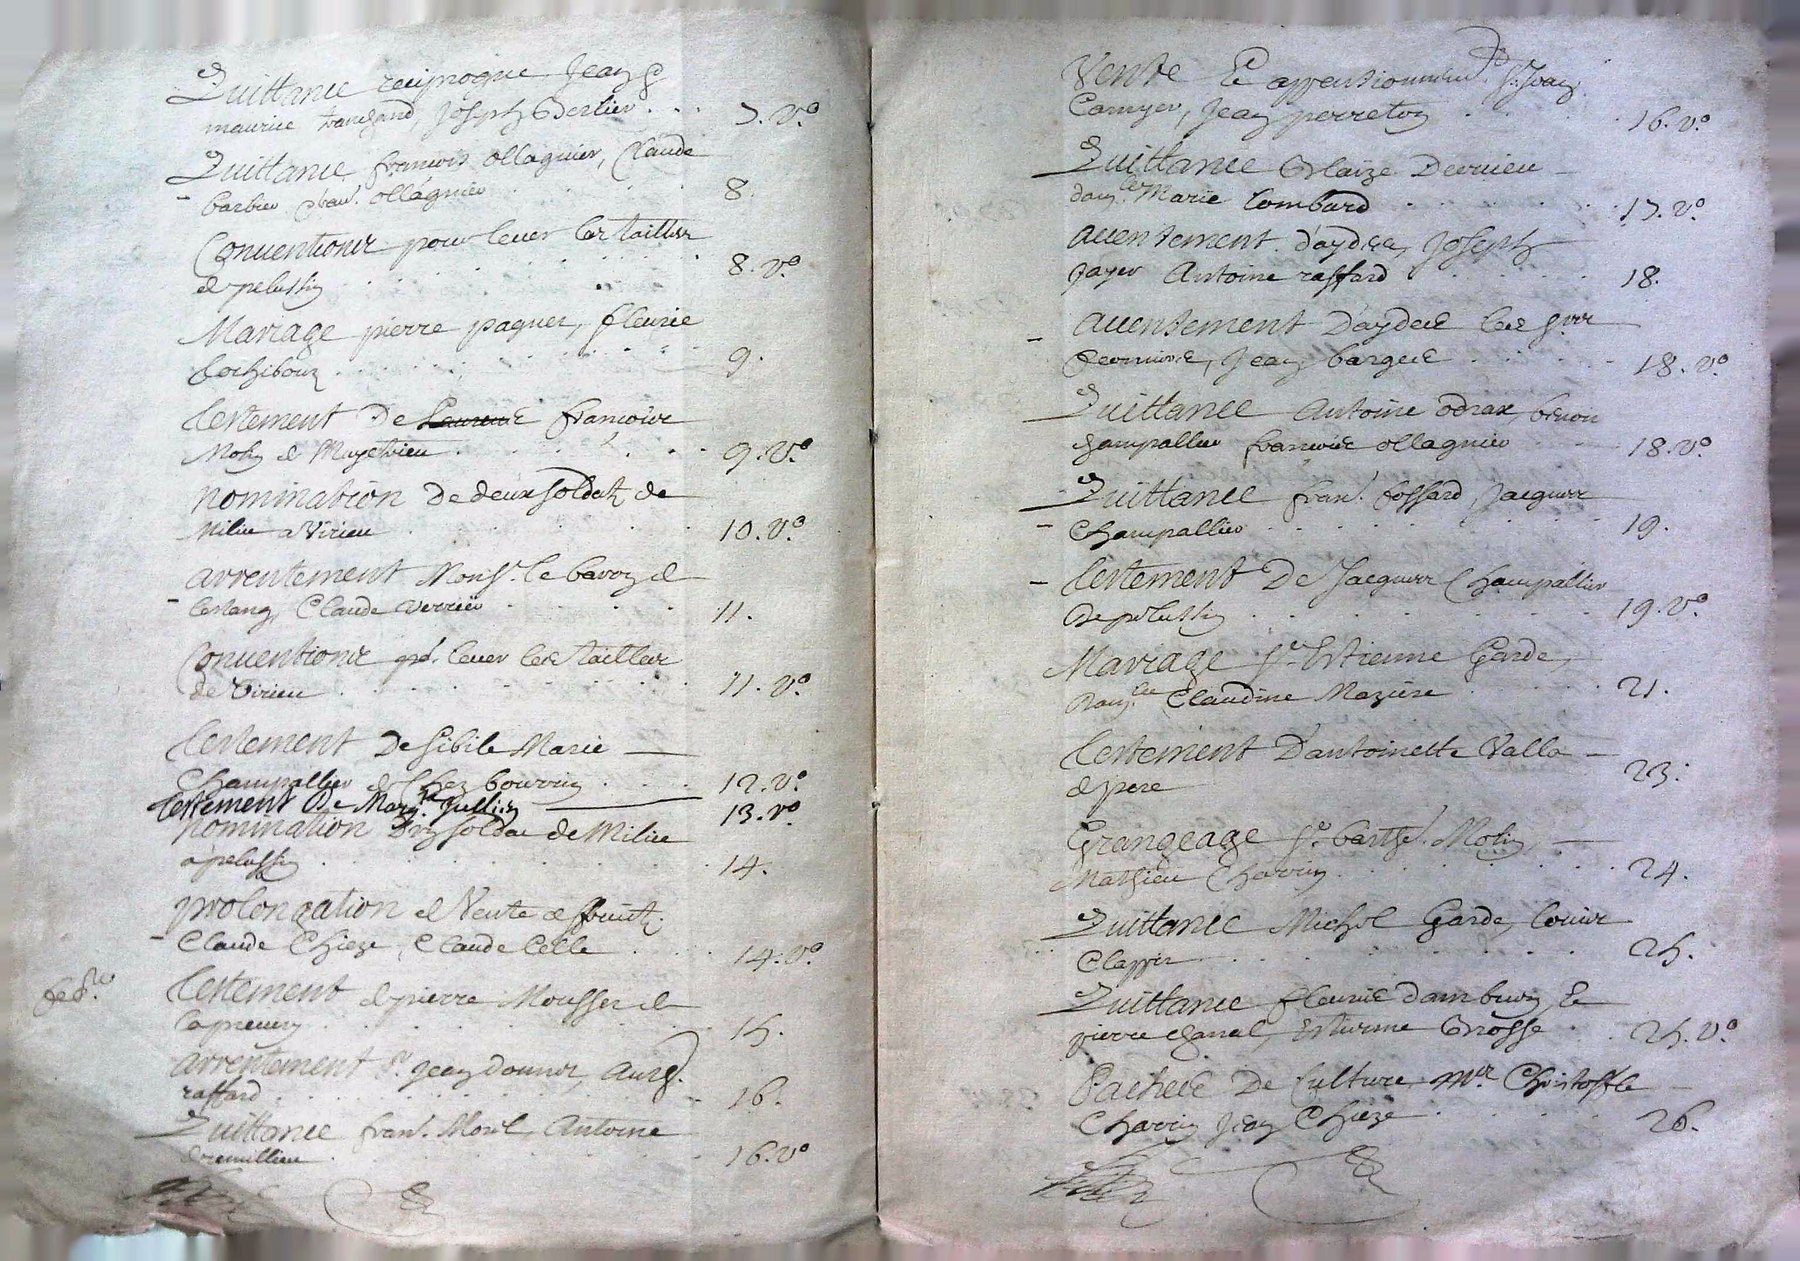 Quittance reciproque Jean &
maurice tranchand, Joseph Berlier . . . 7. v.o
Quittance francois ollagnier, Claude
barbier fran. ollagnier . . . 8
Conventions pour lever les tailles
de pelussin . . . 8. v.o
Mariage pierre paquet, fleurie
. . . 9.
testement De françoise
Molin de . . . 9. v.o
nomination De deux soldats de
Milice a Virieu . . . 10. v.o
arrentement Mons.r le baron de
lestang, Claude verrier . . . 11.
Conventions po.r lever les tailles
de Virieu . . . 11. v.o
testement De Sibile Marie
Champallier de Chez bourrin . . . 12. v.o
testement De 13. v.o
nomination D'un soldat de Milice
a pelussin . . . 14.
prolongation de Vente de fruits
Claude Chieze, Claude Celle . . . 14. v.o
testement de pierre Mousser de
. . . 15.
arrentement S.r Jean donnet, Anth.
raffard . . . 16.
Quittance fran. Morel, Antoine
. . . 16. v.o
Vente & appensionnement S.r Jean
Camyer, Jean perreton . . . 16. v.o
Quittance Blaize Dervieu
dam.lle Marie Lombard . . . 17. v.o
arrentement d'aydes, Joseph
payer Antoine raffard . . . 18.
arrentement D'aydes les s.rs
Jean bargue . . . 18. v.o
Quittance Antoine odrax, benoit
champallier francoise ollagnier . . . 18. v.o
Quittance fran. bossard, Jacques
Champallier . . . 19.
testement De Jacques Champallier
De pelussin . . . 19. v.o
Mariage S.r Estienne Garde,
Dam.lle Claudine Maziere . . . 21.
testement D'antoinette Valla
de pere 23.
Grangeage S.r barthel. Molin,
Mathieu Charrin . . . 24.
Quittance Michel Garde, louis
Clapier . . . 25.
Quittance fleurie dambuin &
pierre chanal, Estienne Brosse . . . 25. v.o
Pachees De Culture M.re Christofle
Charrin Jean Chieze . . . 26.